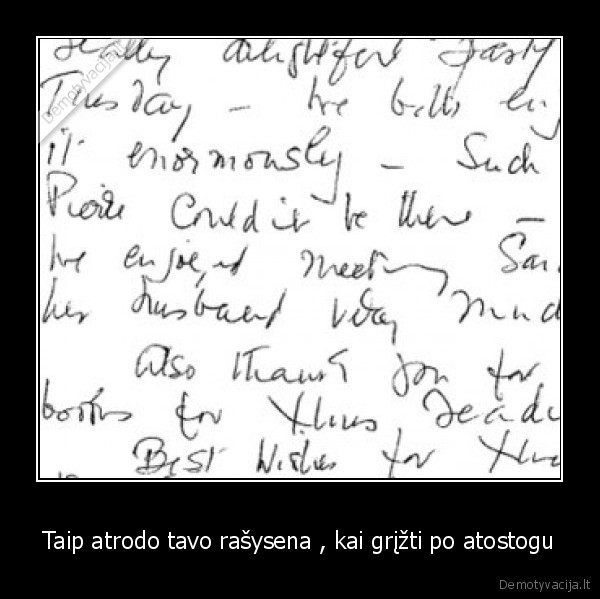 really delightful party
Tuesday – We both enj
it enormously – Such
Pierre Couldn't be there –
We enjoyed meeting Sar
her husband very much
Also thank you for
books for
Best Wishes for
Demotyvacija.lt
Taip atrodo tavo rašysena , kai grįžti po atostogu
Demotyvacija.lt